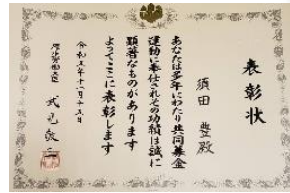 表彰状
須田 豊殿
あなたは多年にわたり共同募金
運動に奉仕されその功績は誠に
顕著なものがあります
よってここに表彰します
令和五年十一月十五日
厚生労働大臣 武見敬三